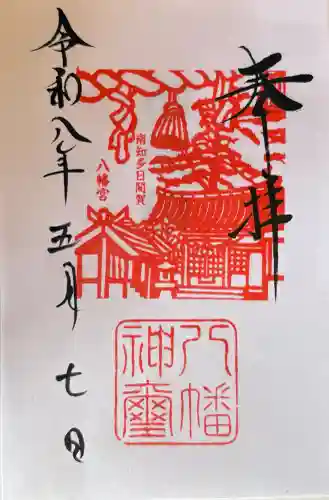 奉拝
南知多日間賀
八幡宮
八幡
神璽
令和八年五月七日